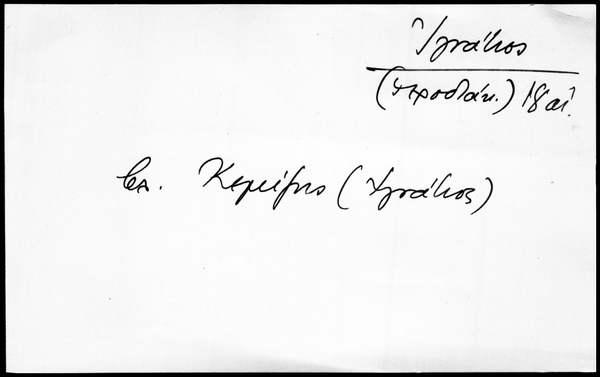 Ἰγνάτιος
(ἱεροδιάκ.) 18 αἰ.
βλ. Κεμείζης (Ἰγνάτιος)